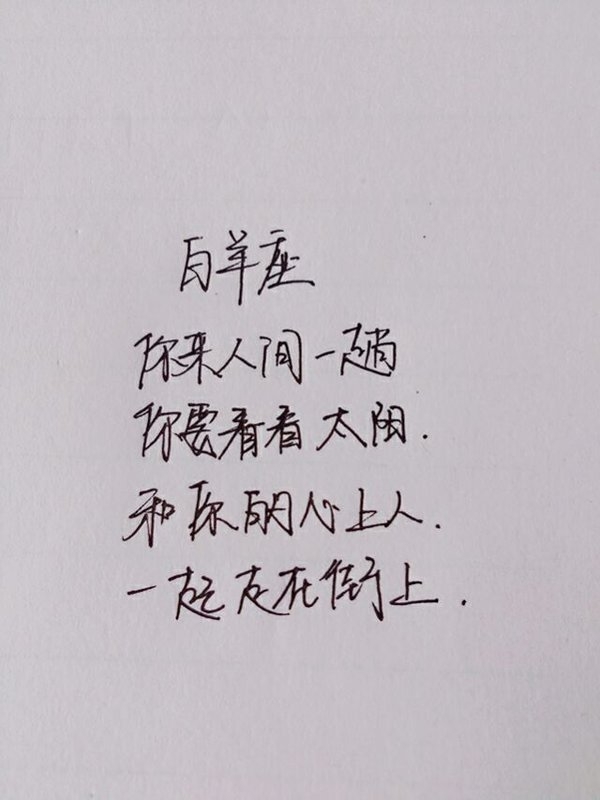 白羊座
你来人间一趟
你要看看太阳.
和你的心上人.
一起走在街上.